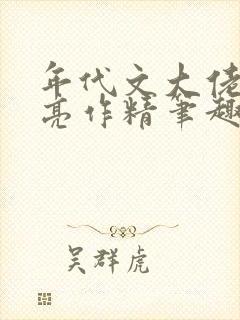 年代文大佬
亮作精笔趣
吴群虎